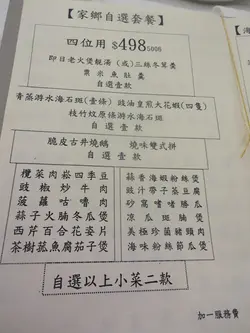 【家鄉自選套餐】
四位用 $498 5006
即日老火煲靚湯 (或) 三絲冬茸羹
粟米魚肚羹
自選壹款
青蒸游水海石斑(壹條) 豉油皇煎大花蝦(四隻)
枝竹炆原條游水海石斑
自選壹款
脆皮古井燒鵝 燒味雙式拼
自選壹款
欖菜肉崧四季豆
豉椒炒牛肉
菠蘿咕嚕肉
蒜子火腩冬瓜煲
西芹百合花姜片
茶樹菰魚腐茄子煲
蒜香海蝦粉絲煲
豉汁帶子蒸豆腐
砂窩啫啫勝瓜
涼瓜斑腩煲
美極珍菌豬頸肉
海味粉絲節瓜煲
自選以上小菜二款
加一服務費